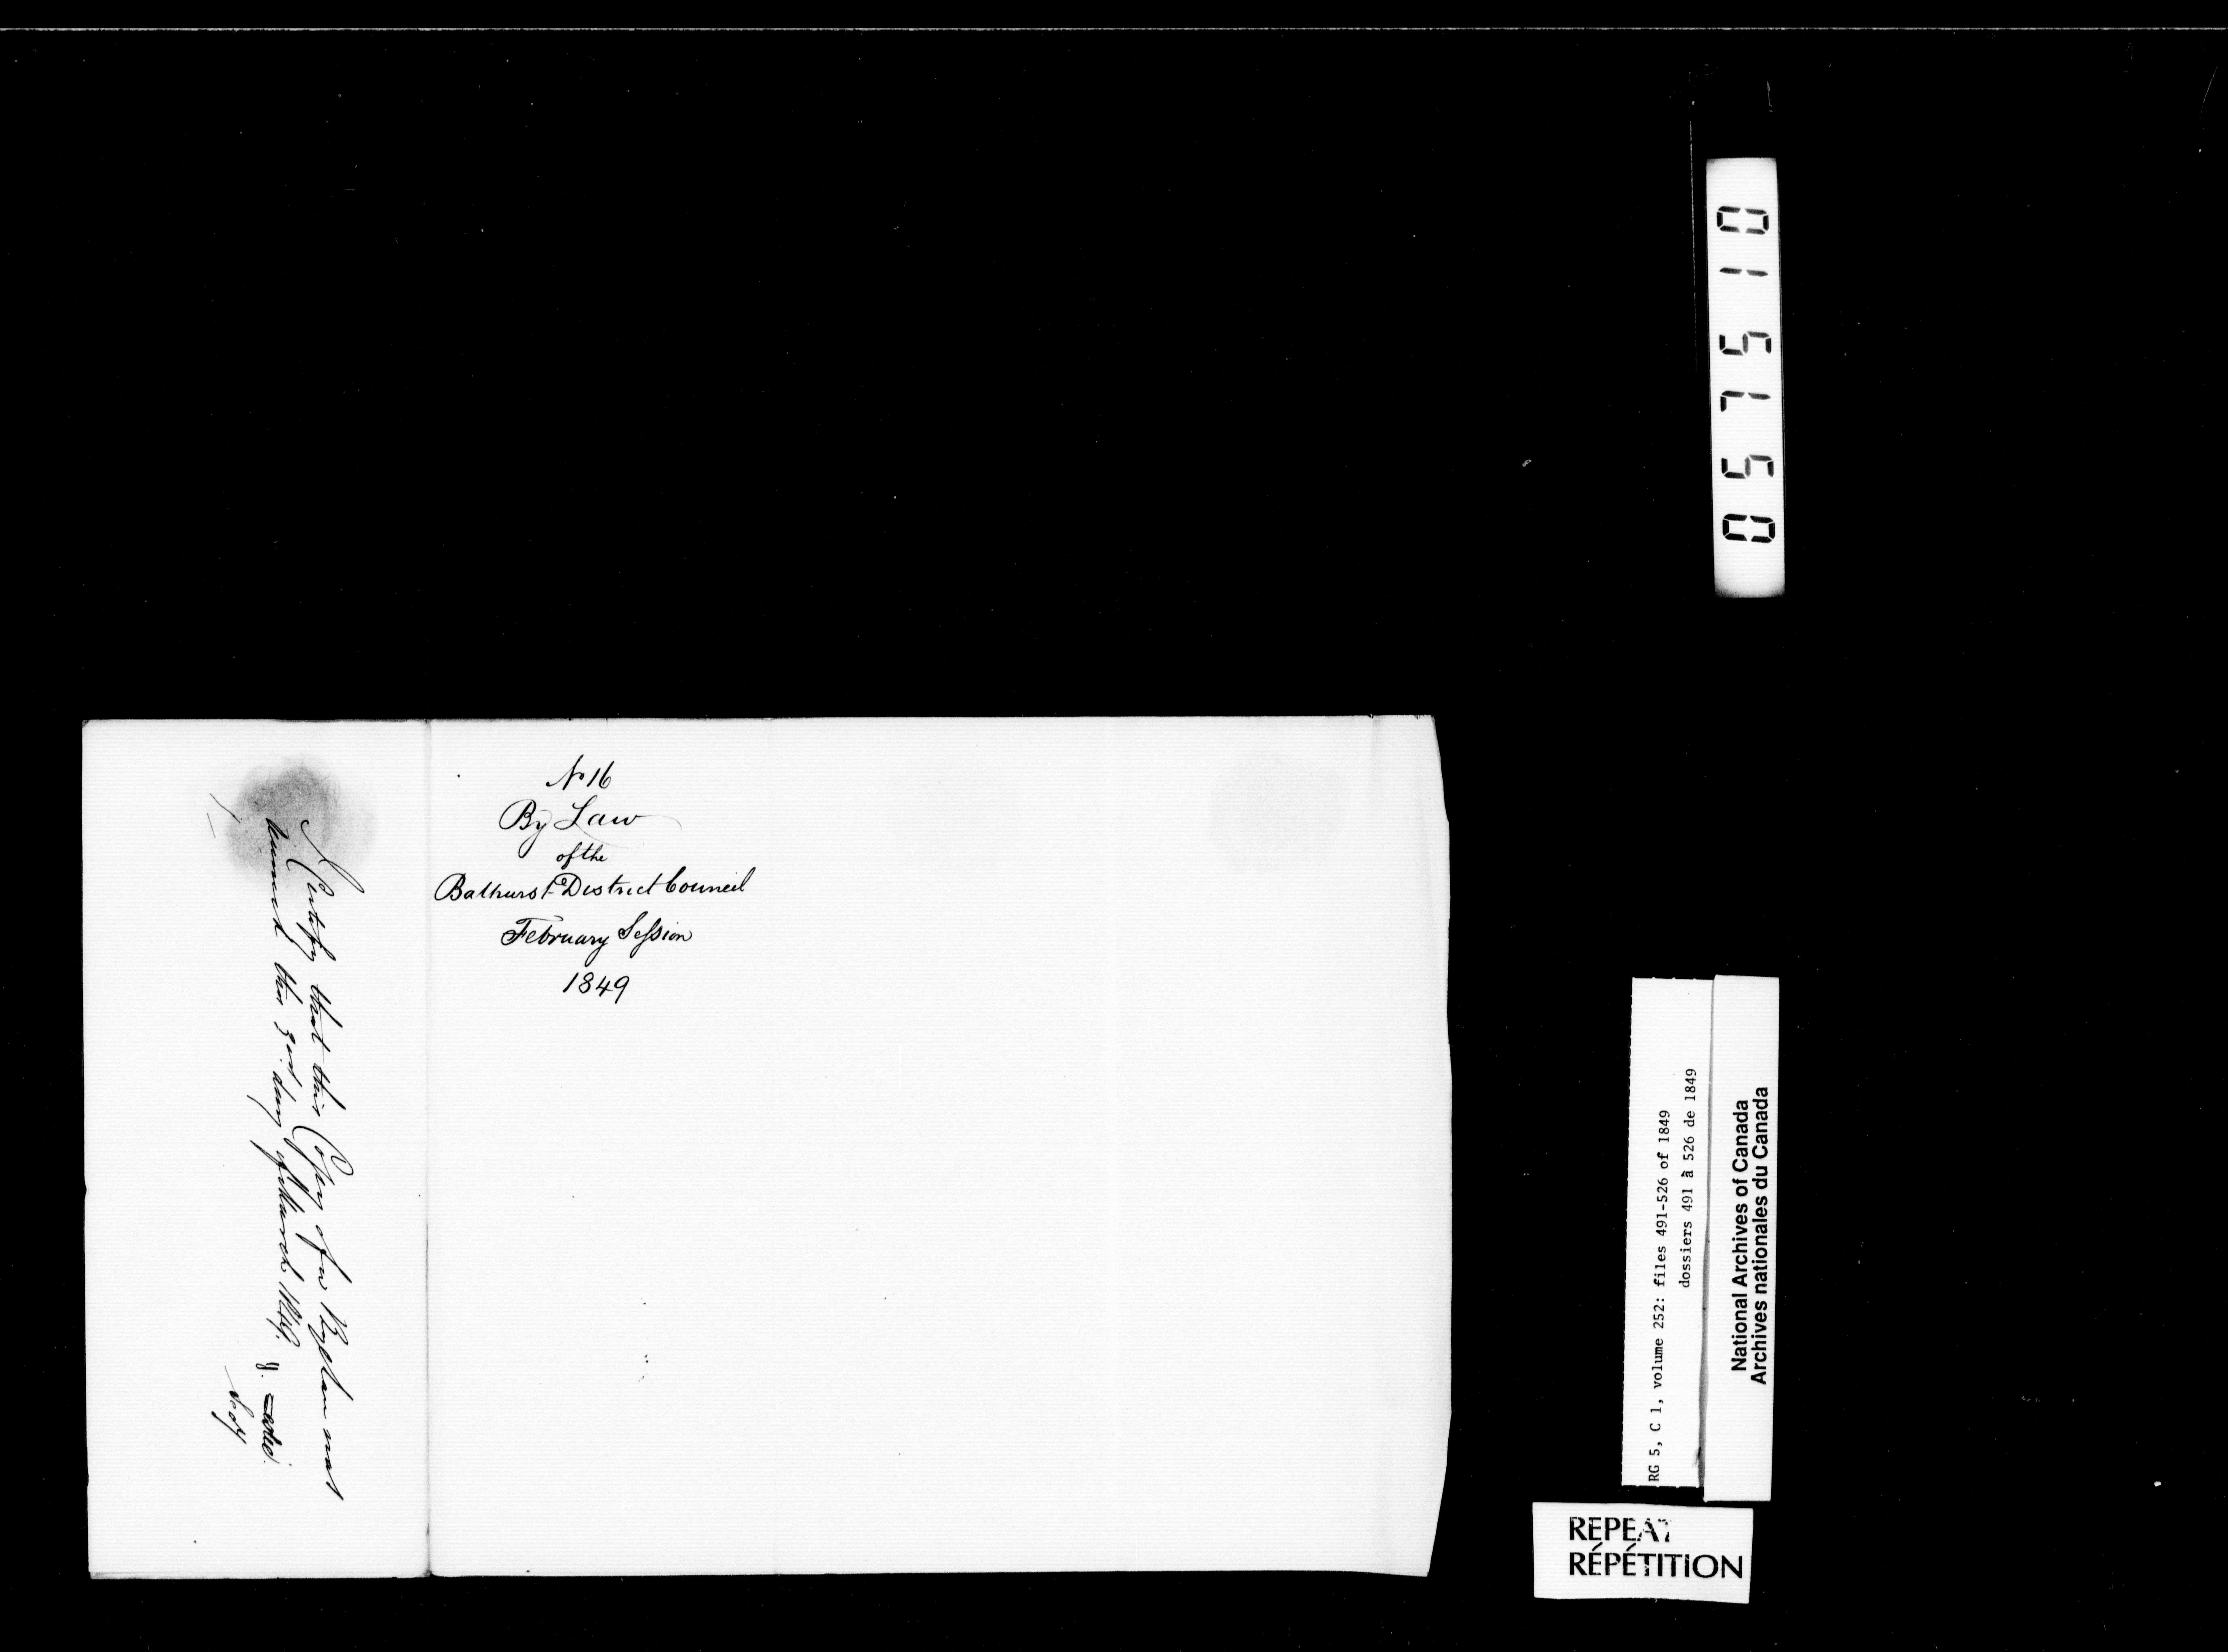 No 16
By Law
of the
Bathurst District Council
February Session
1849
I Certify that this Copy of a Bylaw was
received this day of March 1849.
Secy
057510
RG 5, C 1, volume 252: files 491-526 of 1849
dossiers 491 à 526 de 1849
National Archives of Canada
Archives nationales du Canada
REPEAT
RÉPÉTITION